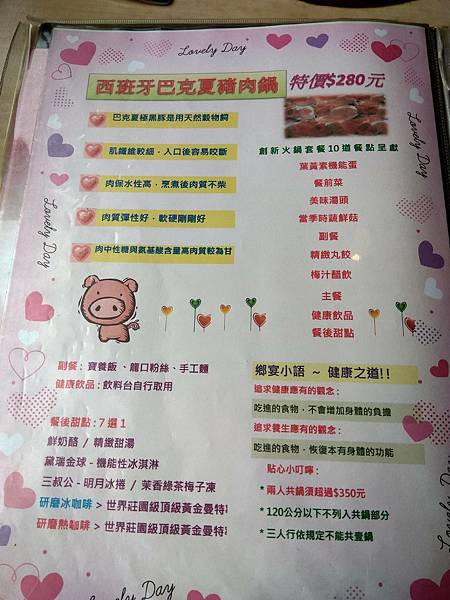 Lovely Day
西班牙巴克夏豬肉鍋 特價$280元
巴克夏極黑豚是用天然穀物飼
肌纖維較細，入口後容易咬斷
肉保水性高，烹煮後肉質不柴
肉質彈性好，軟硬剛剛好
肉中性糖與氨基酸含量高肉質較為甘
創新火鍋套餐10道餐點呈獻
葉黃素機能蛋
餐前菜
美味湯頭
當季時蔬鮮菇
副餐
精緻丸餃
梅汁醋飲
主餐
健康飲品
餐後甜點
Lovely Day
Lovely Day
副餐：寶養飯、龍口粉絲、手工麵
健康飲品：飲料台自行取用
餐後甜點：7選1
鮮奶酪 / 精緻甜湯
黛瑞金球-機能性冰淇淋
三叔公-明月冰捲 / 茉香綠茶梅子凍
研磨冰咖啡 > 世界莊園級頂級黃金曼特
研磨熱咖啡 > 世界莊園級頂級黃金曼特
鄉宴小語 ~ 健康之道!!
追求健康應有的觀念：
吃進的食物，不會增加身體的負擔
追求養生應有的觀念：
吃進的食物，恢復本有身體的功能
貼心小叮嚀：
*兩人共鍋須超過$350元
*120公分以下不列入共鍋部分
*三人行依規定不能共壹鍋
Lovely Day